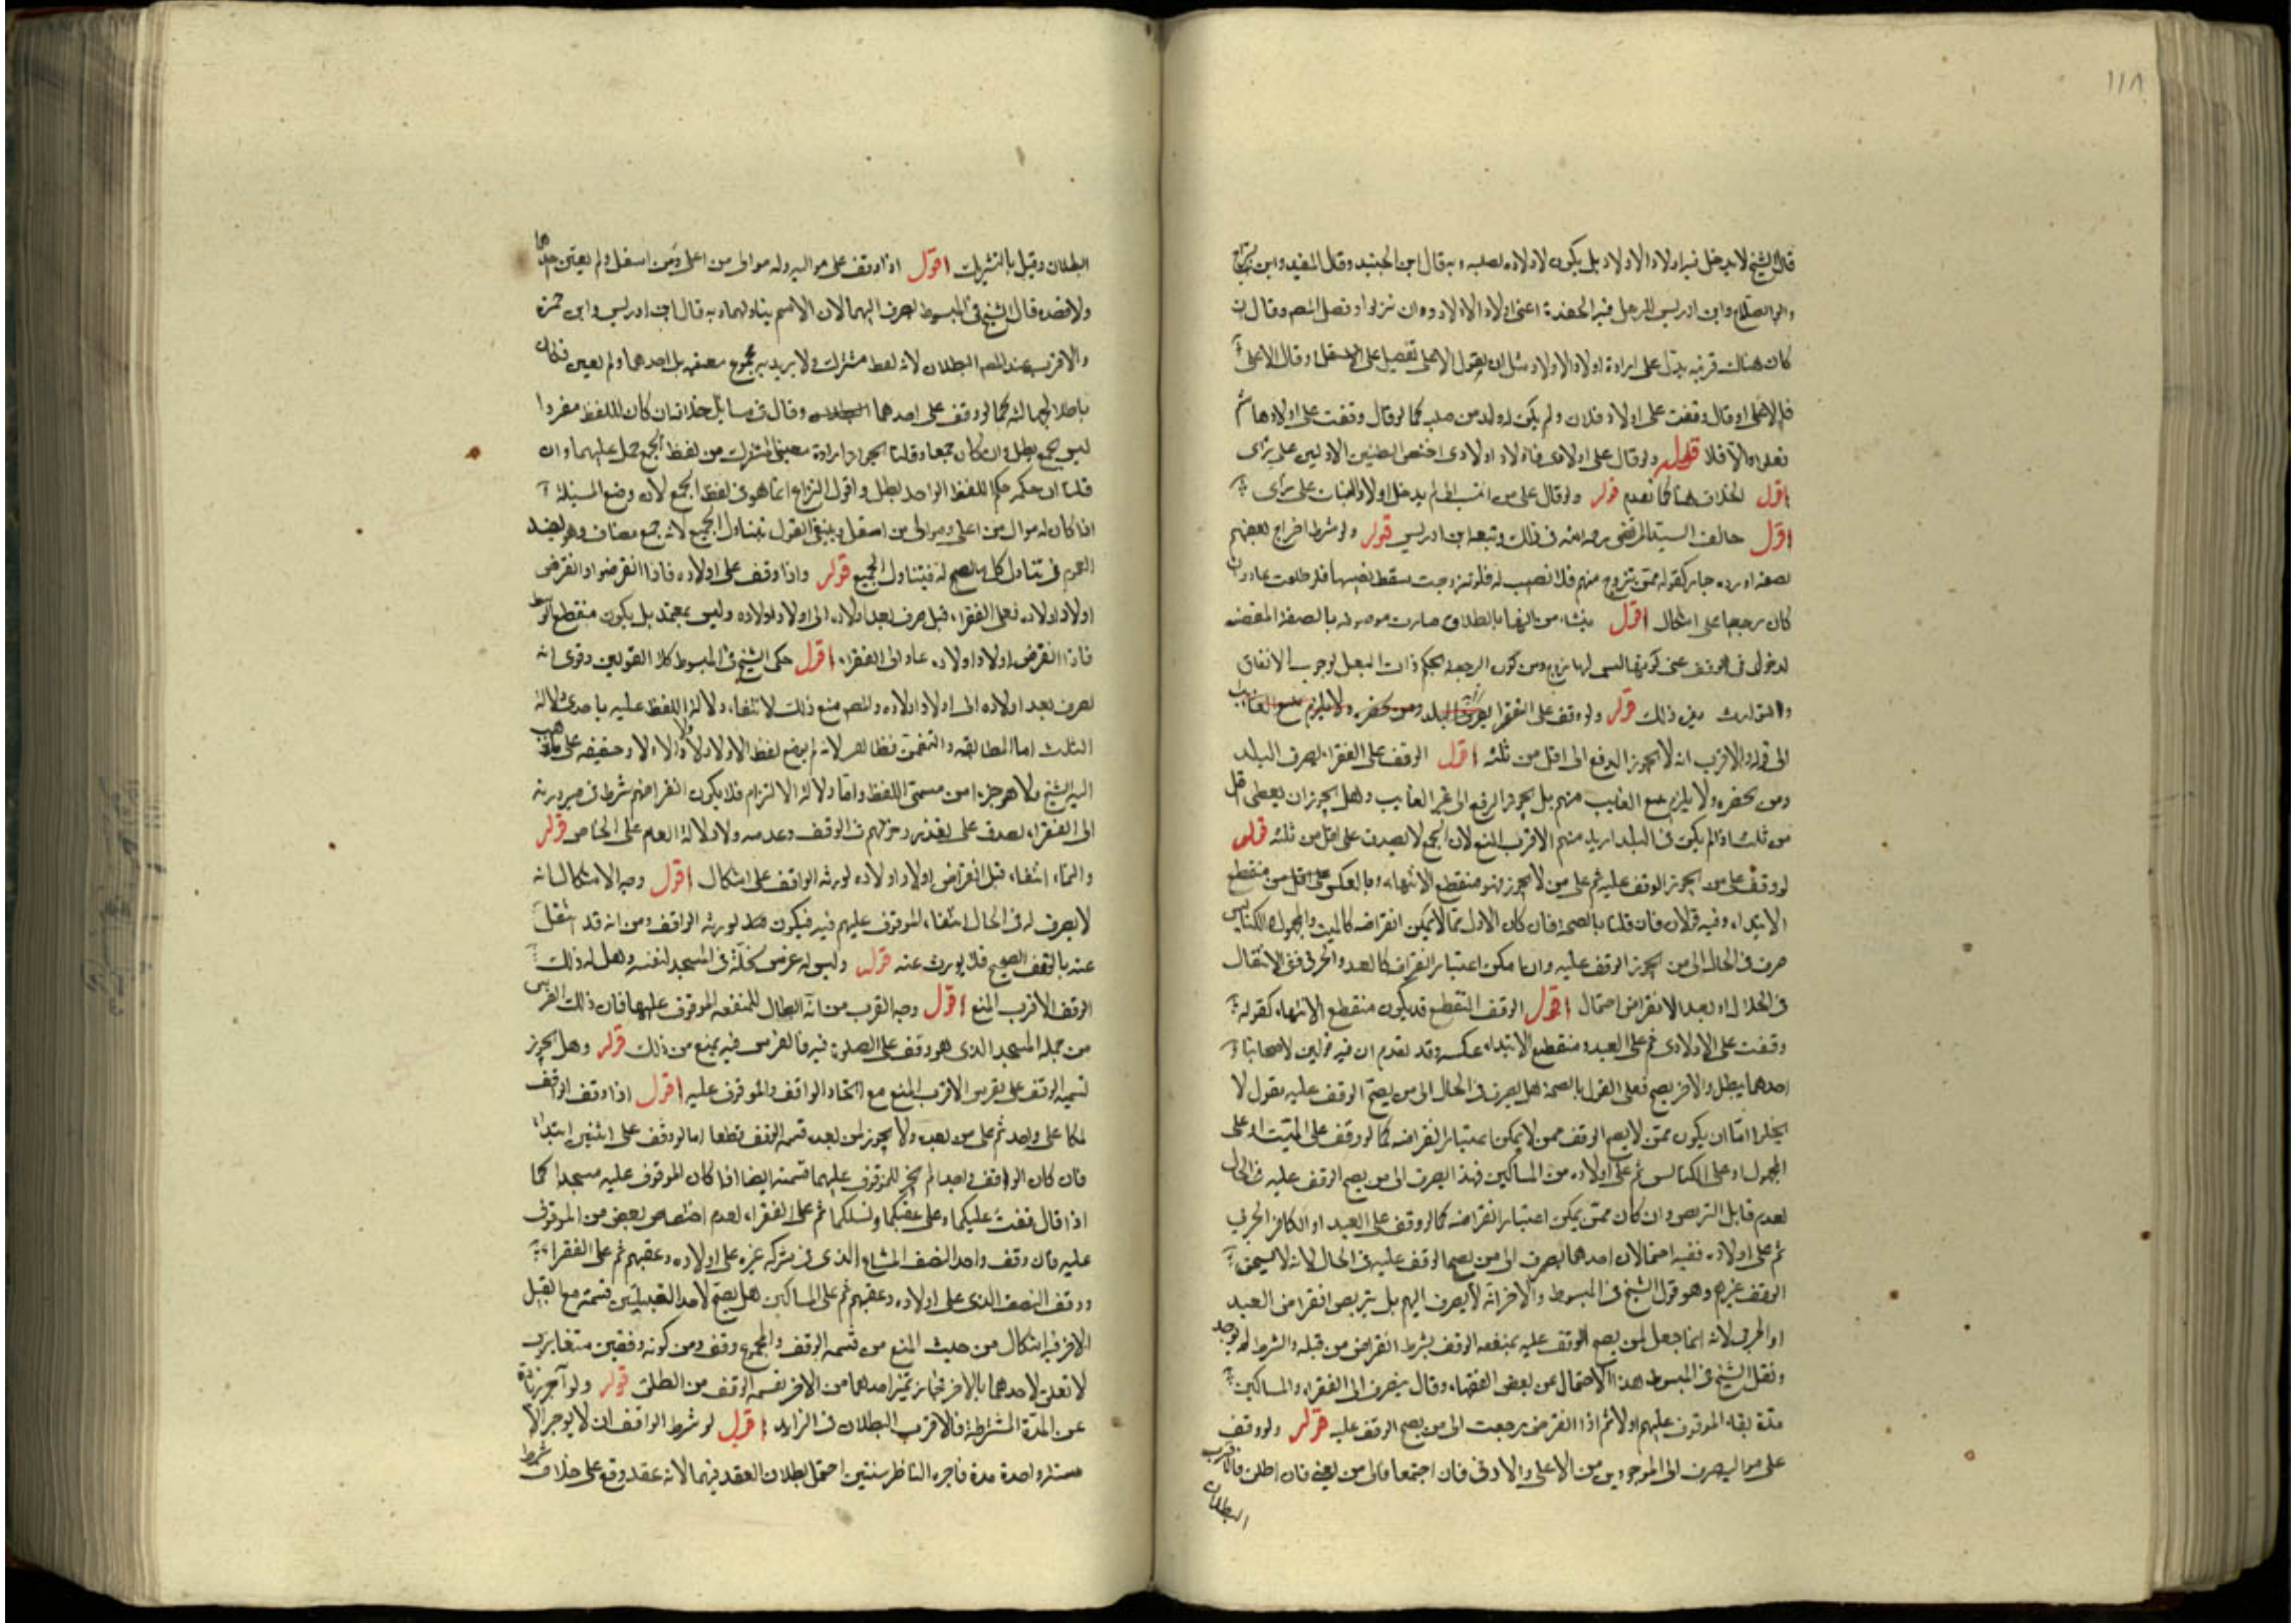 ١١٨
قال الشيخ لا يدخل فيه اولاد الاولاد بل يكون لاولاده لصلبه وبه قال ابن الجنيد وقال المفيد وابن البراج
وابو الصلاح وابن ادريس الحفدة اعنى اولاد الاولاد وان نزلوا وفصل المصـ وقال ان
كان هناك قرينة يدل على ارادة اولاد الاولاد مثل ان يقول الاعلى تفضيل على او قال الاعلى
فالاعلى او قال وقفت على اولاد فلان ولم يكن له ولد من صلب كما لو قال وقفت على اولاد هاشم
فعلى والا فلا قوله ولو قال على اولادى فاولاد اولادى اختص البطنين الاولين على رأى
اقول الخلاف هنا كما تقدم قوله ولو قال على من انتسب الى لم يدخل اولاد البنات على رأى
اقول خالف السيد المرتضى رحمه الله فى ذلك وتبعه ابن ادريس قوله ولو شرط اخراج بعضهم
بصفة او رده جاز كقوله من تزوج منهم فلا نصيب له فلو تزوجت سقط نصيبها فلو طلقت عاد وان
كان رجعيا على اشكال اقول ينشأ من انها بالطلاق صارت موصوفة بالصفة المقتضية
لدخول فى الوقف عنى كونها ليس لها زوج ومن كون الرجعية بحكم ذات البعل لوجوب الانفاق
والتوارث بين ذلك قوله ولو وقف على الفقراء يصرف البلد ومن حضره ولا يلزم تتبع الغايب
الى قوله والاقرب انه لا يجوز الدفع الى اقل من ثلثة اقول الوقف على الفقراء يصرف البلد
ومن يحضره ولا يلزم تتبع الغايب منهم بل يجوز الدفع الى غير الغايب وهل يجوز ان يعطى اقل
من ثلث اذا لم يكن فى البلد ازيد منهم الاقرب المنع لان الجمع لا يصدق على اقل من ثلثة قوله
لو وقف على من يجوز الوقف عليه ثم على من لا يجوز فهو منقطع الانتهاء وبالعكس منقطع
الابتداء وفيه قولان فان قلنا بالصحة فان كان الاول مما لا يمكن انقراضه كالميت والمجهول والكنايس
صرف فى الحال الى من يجوز الوقف عليه وان امكن اعتبار انقراضه كالعبد والحربى ففى الانتقال
فى الحال او بعد الانقراض احتمال اقول الوقف المنقطع قد يكون منقطع الانتهاء كقوله
وقفت على اولادى ثم على العبد ومنقطع الابتداء عكسه وقد تقدم ان فيه قولين لاصحابنا
احدهما يبطل والاخر يصح فعلى القول بالصحة هل يصرف فى الحال الى من يصح الوقف عليه يقول لا
يخلوا اما ان يكون ممن لا يصح الوقف ممن لا يمكن اعتبار انقراضه كما لو وقف على الميت او على
المجهول او على الكنايس ثم على اولاده من المساكين فهذا يصرف الى من يصح الوقف عليه فى الحال
لعدم قابل التربص وان كان ممن يمكن اعتبار انقراضه كما لو وقف على العبد او الكافر الحربى
ثم على اولاده ففيه احتمالان احدهما يصرف الى من يصح الوقف عليه فى الحال لانه لا يستحق
الوقف غيرهم وهو قول الشيخ فى المبسوط والاخر انه لا يصرف اليهم بل يتربص انقراض العبد
او الحربى لانه انما جعل لمن يصح الوقف عليه بمنفعة الوقف بشرط انقراض من قبله والشرط لم يوجد
ونقل الشيخ فى المبسوط هذا الاحتمال عن بعض الفقهاء وقال يصرف الى الفقراء والمساكين
مدة بقاء الموقوف عليهم اولا ثم اذا انقرض رجعت الى من يصح الوقف عليه قوله ولو وقف
على مواليه صرف الى الموجودين من الاعلى والادنى فان اجتمعا فالى من يعنى فان اطلق فالاقرب
البطلان
البطلان وقيل بالتشريك اقول اذا وقف على مواليه وله موالى من اعلى ومن اسفل ولم يعين احدهما
ولا قصده قال الشيخ فى المبسوط يصرف اليهما لان الاسم يتناولهما وبه قال ابن ادريس وابن حمزة
والاقرب عند المصـ البطلان لانه لفظ مشترك ولا يريد به مجموع معنييه بل احدهما ولم يعين فكان
باطلا لجهالته كما لو وقف على احدهما وقال فى مسايل خلاف ان كان اللفظ مفردا
ليس بجمع بطل وان كان جمعا وقلنا بجواز ارادة معنيى المشترك من لفظ الجمع حمل عليهما وان
قلنا ان حكمه حكم اللفظ الواحد بطل واقول النزاع انما هو فى لفظ الجمع لان وضع المسئلة
اذا كان له موال من اعلى وموالى من اسفل وينبغى القول بتناول الجميع لانه جمع مضاف وهو يفيد
العموم فى تناول كل ما يصلح له فيتناول الجميع قوله واذا وقف على اولاده فاذا انقرضوا وانقرض
اولاد اولاده فعلى الفقراء قيل صرف بعد اولاده الى اولاد اولاده وليس بمعتمد بل يكون منقطع الوسط
فاذا انقرض اولاد اولاده عاد الى الفقراء اقول حكى الشيخ فى المبسوط كلا القولين وقوى انه
يصرف بعد اولاده الى اولاد اولاده والمصـ منع ذلك لانتفاء دلالة اللفظ عليه باحدى دلالاته
الثلث اما المطابقة والتضمن فظاهر لانه لم يوضع لفظ الاولاد لاولاد الاولاد حقيقة على ما ذهب
اليه الشيخ ولا هو جزء من مسمى اللفظ واما دلالة الالتزام فلا يكون انقراضهم شرط فى صيرورته
الى الفقراء يصدق على تقدير دخولهم فى الوقف وعدمه ولا دلالة العام على الخاص قوله
والنماء انتفاء قبل انقراض اولاد اولاده لورثة الواقف على اشكال اقول وجه الاشكال انه
لا يصرف له فى الحال انتفاء الموقوف عليهم فيه فيكون لورثة الواقف ومن انه قد انتقل
عنه بالوقف الصحيح فلا يورث عنه قوله وليس له غرس نخلة فى المسجد لنفسه وهل له ذلك
الوقف الاقرب المنع اقول وجه القرب من انه ابطال للمنفعة الموقوف عليها فان ذلك الغرس
من جملة المسجد الذى هو وقف على الصلوة فيه فالغرس فيه يمنع من ذلك قوله وهل يجوز
قسمة الوقف على الاقرب المنع مع اتحاد الواقف والموقوف عليه اقول اذا وقف الواقف
ملكا على واحد ثم على من بعده ولا يجوز لمن بعده قسمة الوقف قطعا اما لو وقف على اثنين ابتداء
فان كان الواقف واحدا لم يجز للموقوف عليهما قسمته ايضا اذا كان الموقوف عليه مسجدا كما
اذا قال وقفت عليكما وعلى عقبكما ونسلكما ثم على الفقراء لعدم اختصاص بعض من الموقوف
عليه فان وقف واحد النصف المشاع الذى فى شركة غيره على اولاده وعقبهم ثم على الفقراء
ووقف النصف الذى على اولاده وعقبهم ثم على المساكين هل يصح لاحد القبيلين قسمته مع القبيل
الاخر فيه اشكال من حيث المنع من قسمة الوقف والمجموع وقف ومن كونه وقفين متغايرين
لا تعلق لاحدهما بالاخر فجاز تميز احدهما من الاخر كقسمة الوقف من الطلق قوله ولو آجر زيادة
عن المدة المشترطة فالاقرب البطلان فى الزايد اقول لو شرط الواقف ان لا يوجر الا
سنة واحدة مدة فاجره الناظر سنتين احتمل بطلان العقد فيهما لانه عقد وقع على خلاف شرط